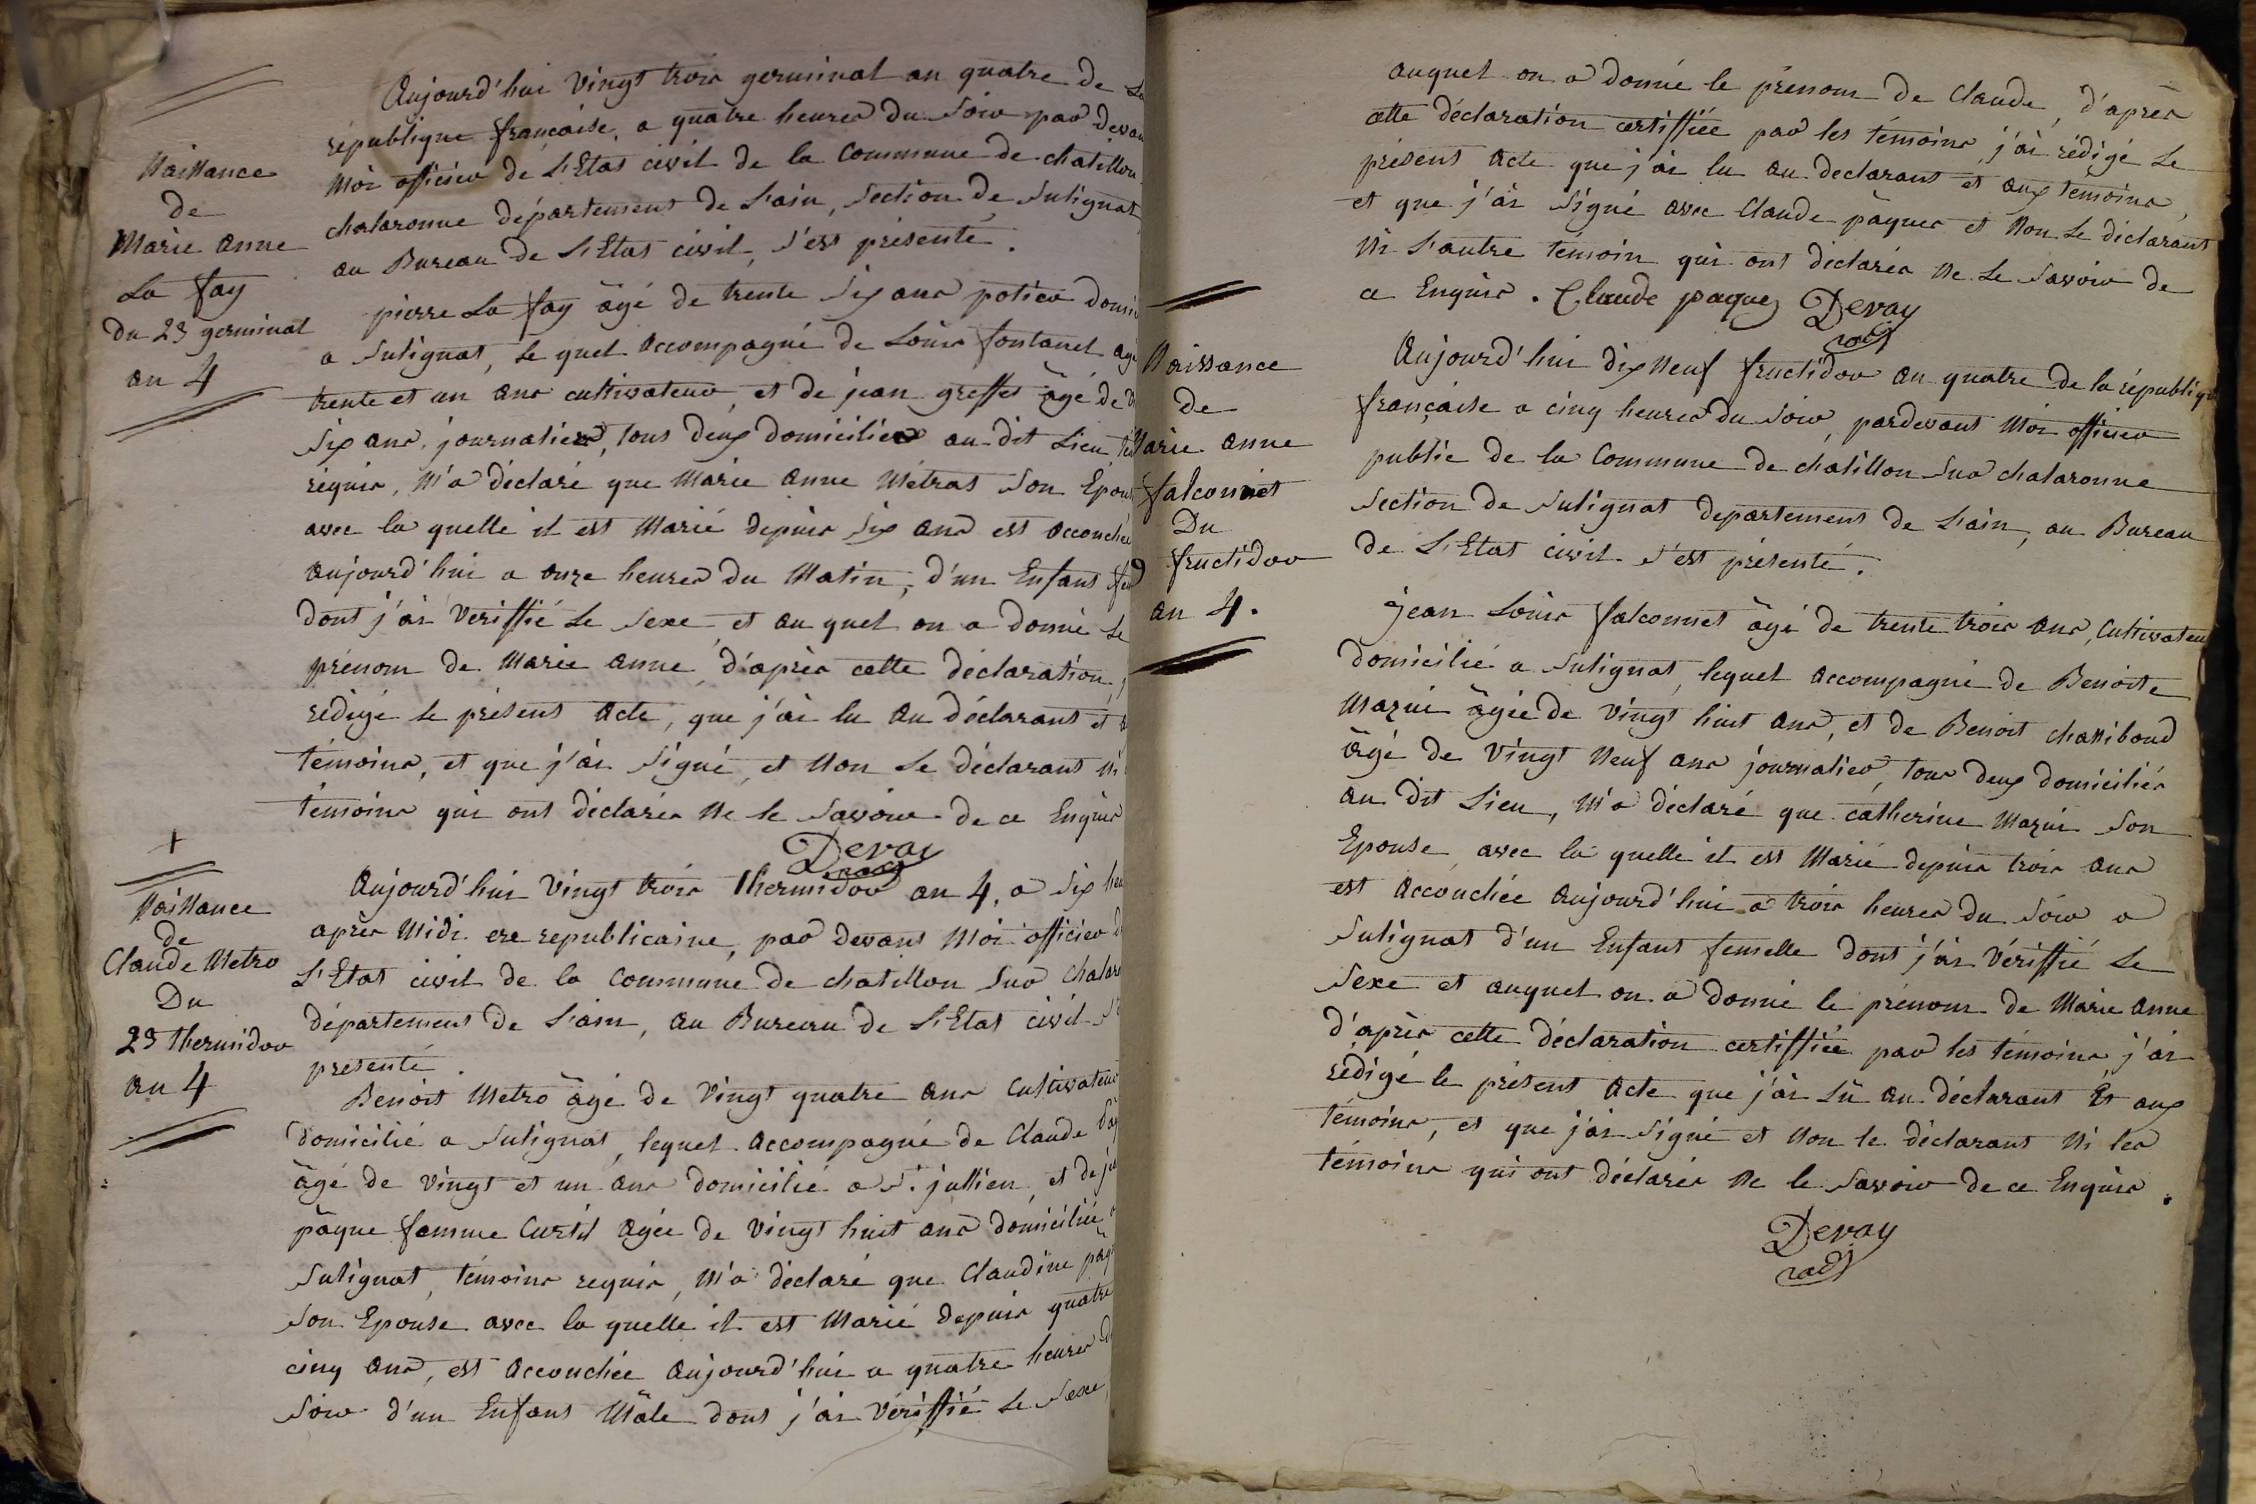 Naissance
de
Marie anne
La fay
du 23 germinal
an 4
Aujourd'hui vingt trois germinal an quatre de La
république française, a quatre heures du soir par devan
moi officier de L'Etat civil de la Commune de chatillon
chalaronne département de L'ain, section de Sulignat,
au Bureau de L'Etat civil, s'est présenté.
pierre La fay âgé de trente six ans potier domi
a Sulignat, le quel accompagné de Loüis fontanel agé
trente et un ans cultivateur, et de jean greffet âgé de
six ans, journalier, tous deux domiciliés au dit Lieu
réquis, m'a déclaré que Marie anne Métras son Epous
avec la quelle il est Marié depuis six ans est accouchée
aujourd'hui a onze heures du Matin, d'un Enfant fem
dont j'ai vériffié Le sexe et au quel on a donné Le
prénom de Marie anne, d'après cette déclaration, j
rédigé le présent acte, que j'ai lu au déclarant et a
témoins, et que j'ai signé, et non Le déclarant ni
témoins qui ont déclarés ne le savoir de ce Enquis
Devay
+
Naissance
de
Claude Metro
Du
23 thermidor
an 4
Aujourd'hui vingt trois thermidor an 4, a six heu
après Midi ere republicaine, par devant Moi officier d
L'Etat civil de la Commune de chatillon sur chalar
département de L'ain, au Bureau de L'Etat civil s'e
présenté.
Benoit Metro âgé de vingt quatre ans cultivateur
domicilié a Sulignat, lequel accompagné de Claude Pâq
âgé de vingt et un ans domicilié a St. jullien, et de ju
pâque femme Curtil agée de vingt huit ans domiciliée a
Sulignat, témoins requis, m'a déclaré que Claudine pâq
son Epouse avec la quelle il est Marié depuis quatre
cinq ans, est accouchée aujourd'hui a quatre heures d
soir d'un Enfant Mâle dont j'ai vériffié Le sexe,
auquel on a donné le prénom de Claude, d'après
cette déclaration certiffiée par les témoins j'ai rédigé Le
présent acte que j'ai lu au déclarant et aux témoins,
et que j'ai signé avec Claude pâques et non Le déclarant
ni L'autre temoin qui ont déclarés ne Le savoir de
ce Enquis. Claude paques Devay
Naissance
de
Marie anne
falconnet
Du
fructidor
an 4.
Aujourd'hui dix neuf fructidor an quatre de la républiqu
française a cinq heures du soir, pardevant Moi officier
public de la Commune de chatillon sur chalaronne
section de Sulignat departement de L'ain, au Bureau
de L'Etat civil s'est présenté.
jean Loüis falconnet âgé de trente trois ans, Cultivateur
domicilié a Sulignat, lequel accompagné de Benoite
Mazui âgée de vingt huit ans, et de Benoit chanibond
âgé de vingt neuf ans journalier, tous deux domiciliés
au dit Lieu, m'a déclaré que catherine Mazui son
Epouse avec la quelle il est Marié depuis trois ans
est accouchée aujourd'hui a trois heures du soir a
Sulignat d'un Enfant femelle dont j'ai vériffié Le
sexe et auquel on a donné le prénom de Marie anne
d'après cette déclaration certiffiée par les témoins j'ai
rédigé le présent acte que j'ai Lû au déclarant Et aux
témoins, et que j'ai signé et non le déclarant ni les
témoins qui ont déclarés ne le savoir de ce Enquis.
Devay